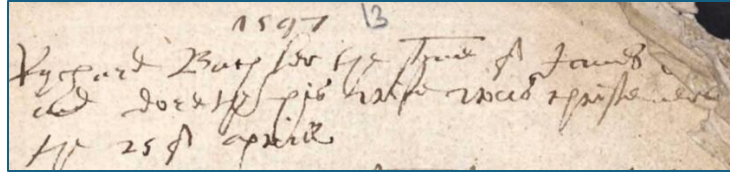 1597 13
Rychard Bacheler the sonne of James
and dorethy his wife was christened
the 25 of aprill